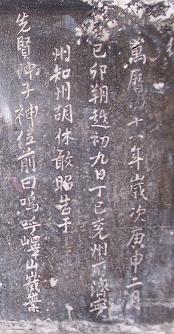 萬曆十八年歲次庚申二月
己卯朔越初九日丁巳兗州府
州知州胡休敢昭告于
先賢仲子神位前曰嗚呼嶧山